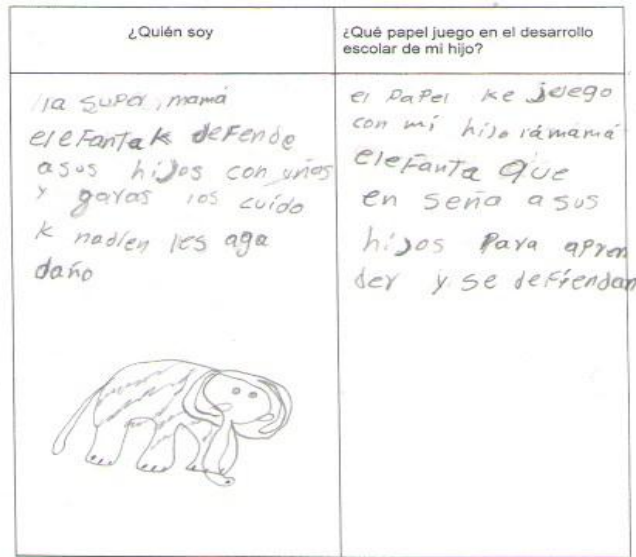 ¿Quién soy
¿Qué papel juego en el desarrollo
escolar de mi hijo?
la super mamá
elefanta k defende
asus hijos con uñas
y garas los cuido
k nadien les aga
daño
el papel ke juego
con mi hijo lámamá
elefanta que
en seña a sus
hijos para apren
der y se defiendan